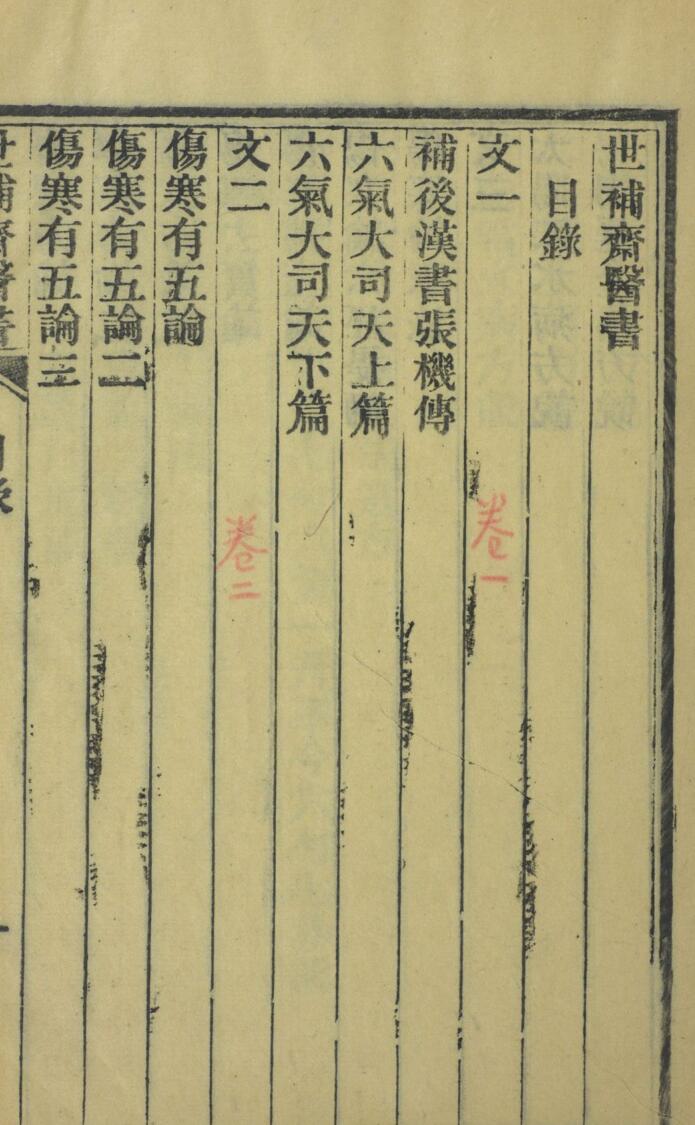 世補齋醫書
目錄
文一
卷一
補後漢書張機傳
六氣大司天上篇
六氣大司天下篇
文二
卷二
傷寒有五論
傷寒有五論二
傷寒有五論三
世補齋醫書
目錄
一